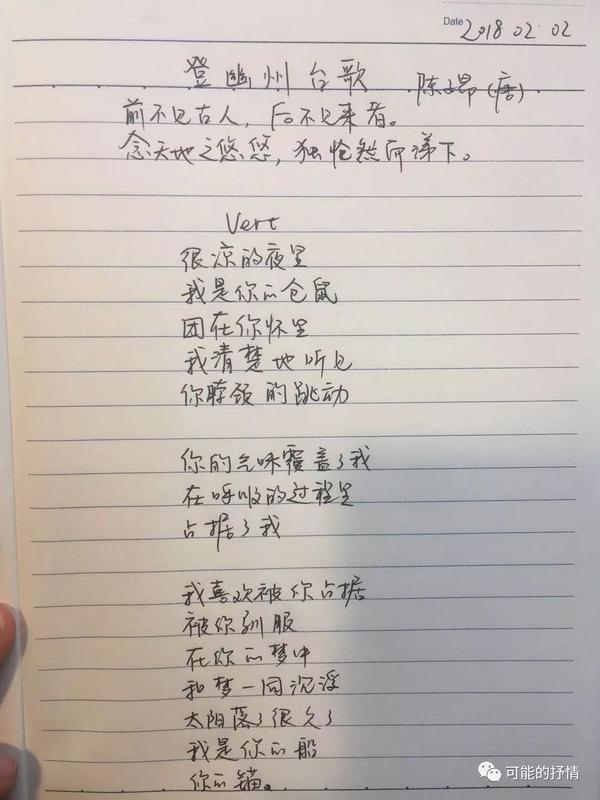 Date 2018 02. 02
登幽州台歌 陈子昂(唐)
前不见古人，后不见来者。
念天地之悠悠，独怆然而涕下。
Vert
很凉的夜里
我是你的仓鼠
团在你怀里
我清楚地听见
你脖颈的跳动
你的气味覆盖了我
在呼吸的过程里
占据了我
我喜欢被你占据
被你驯服
在你的梦中
和梦一同沉浮
太阳落了很久了
我是你的船
你的锚。
可能的抒情